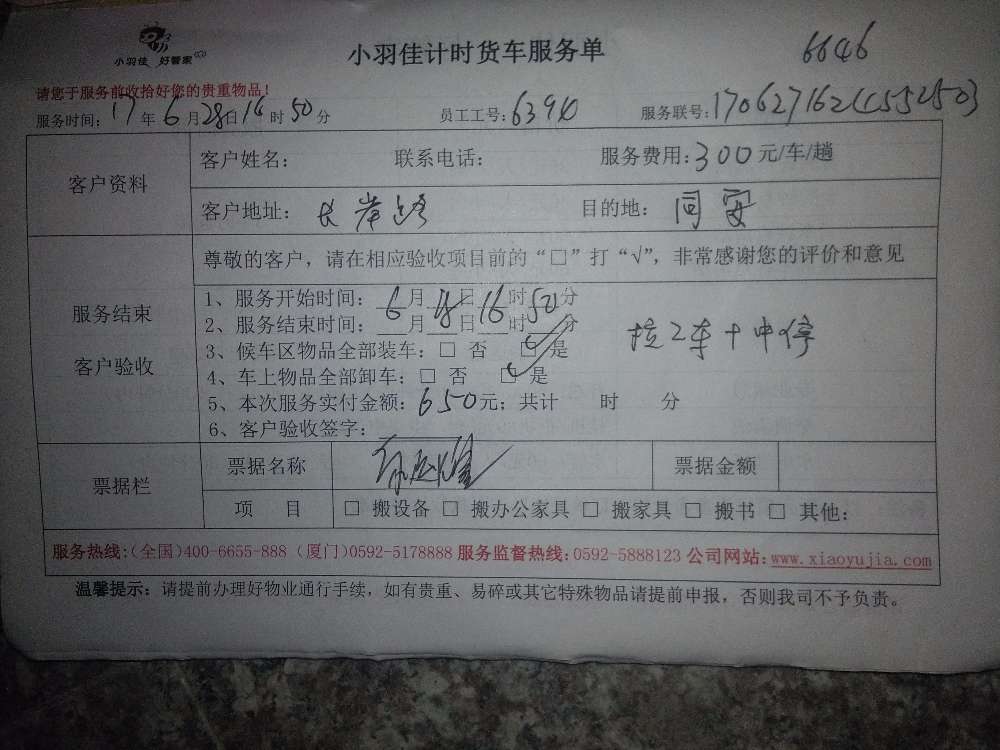 小羽佳 好管家
小羽佳计时货车服务单
6646
请您于服务前收拾好您的贵重物品！
服务时间：17年6月28日16时50分 员工工号：6390 服务联号：170627162(C552503)
客户资料
客户姓名： 联系电话： 服务费用：300元/车/趟
客户地址：长岸路 目的地：同安
服务结束
客户验收
尊敬的客户，请在相应验收项目前的“□”打“√”，非常感谢您的评价和意见
1、服务开始时间：6月28日16时50分
2、服务结束时间：__月__日__时__分
3、候车区物品全部装车：□ 否 □ 是
4、车上物品全部卸车：□ 否 □ 是
拉2车+中停
5、本次服务实付金额：650元；共计 时 分
6、客户验收签字：
票据栏
票据名称 票据金额
项 目 □ 搬设备 □ 搬办公家具 □ 搬家具 □ 搬书 □ 其他：
服务热线：(全国)400-6655-888 (厦门)0592-5178888 服务监督热线：0592-5888123 公司网站：www.xiaoyujia.com
温馨提示：请提前办理好物业通行手续，如有贵重、易碎或其它特殊物品请提前申报，否则我司不予负责。